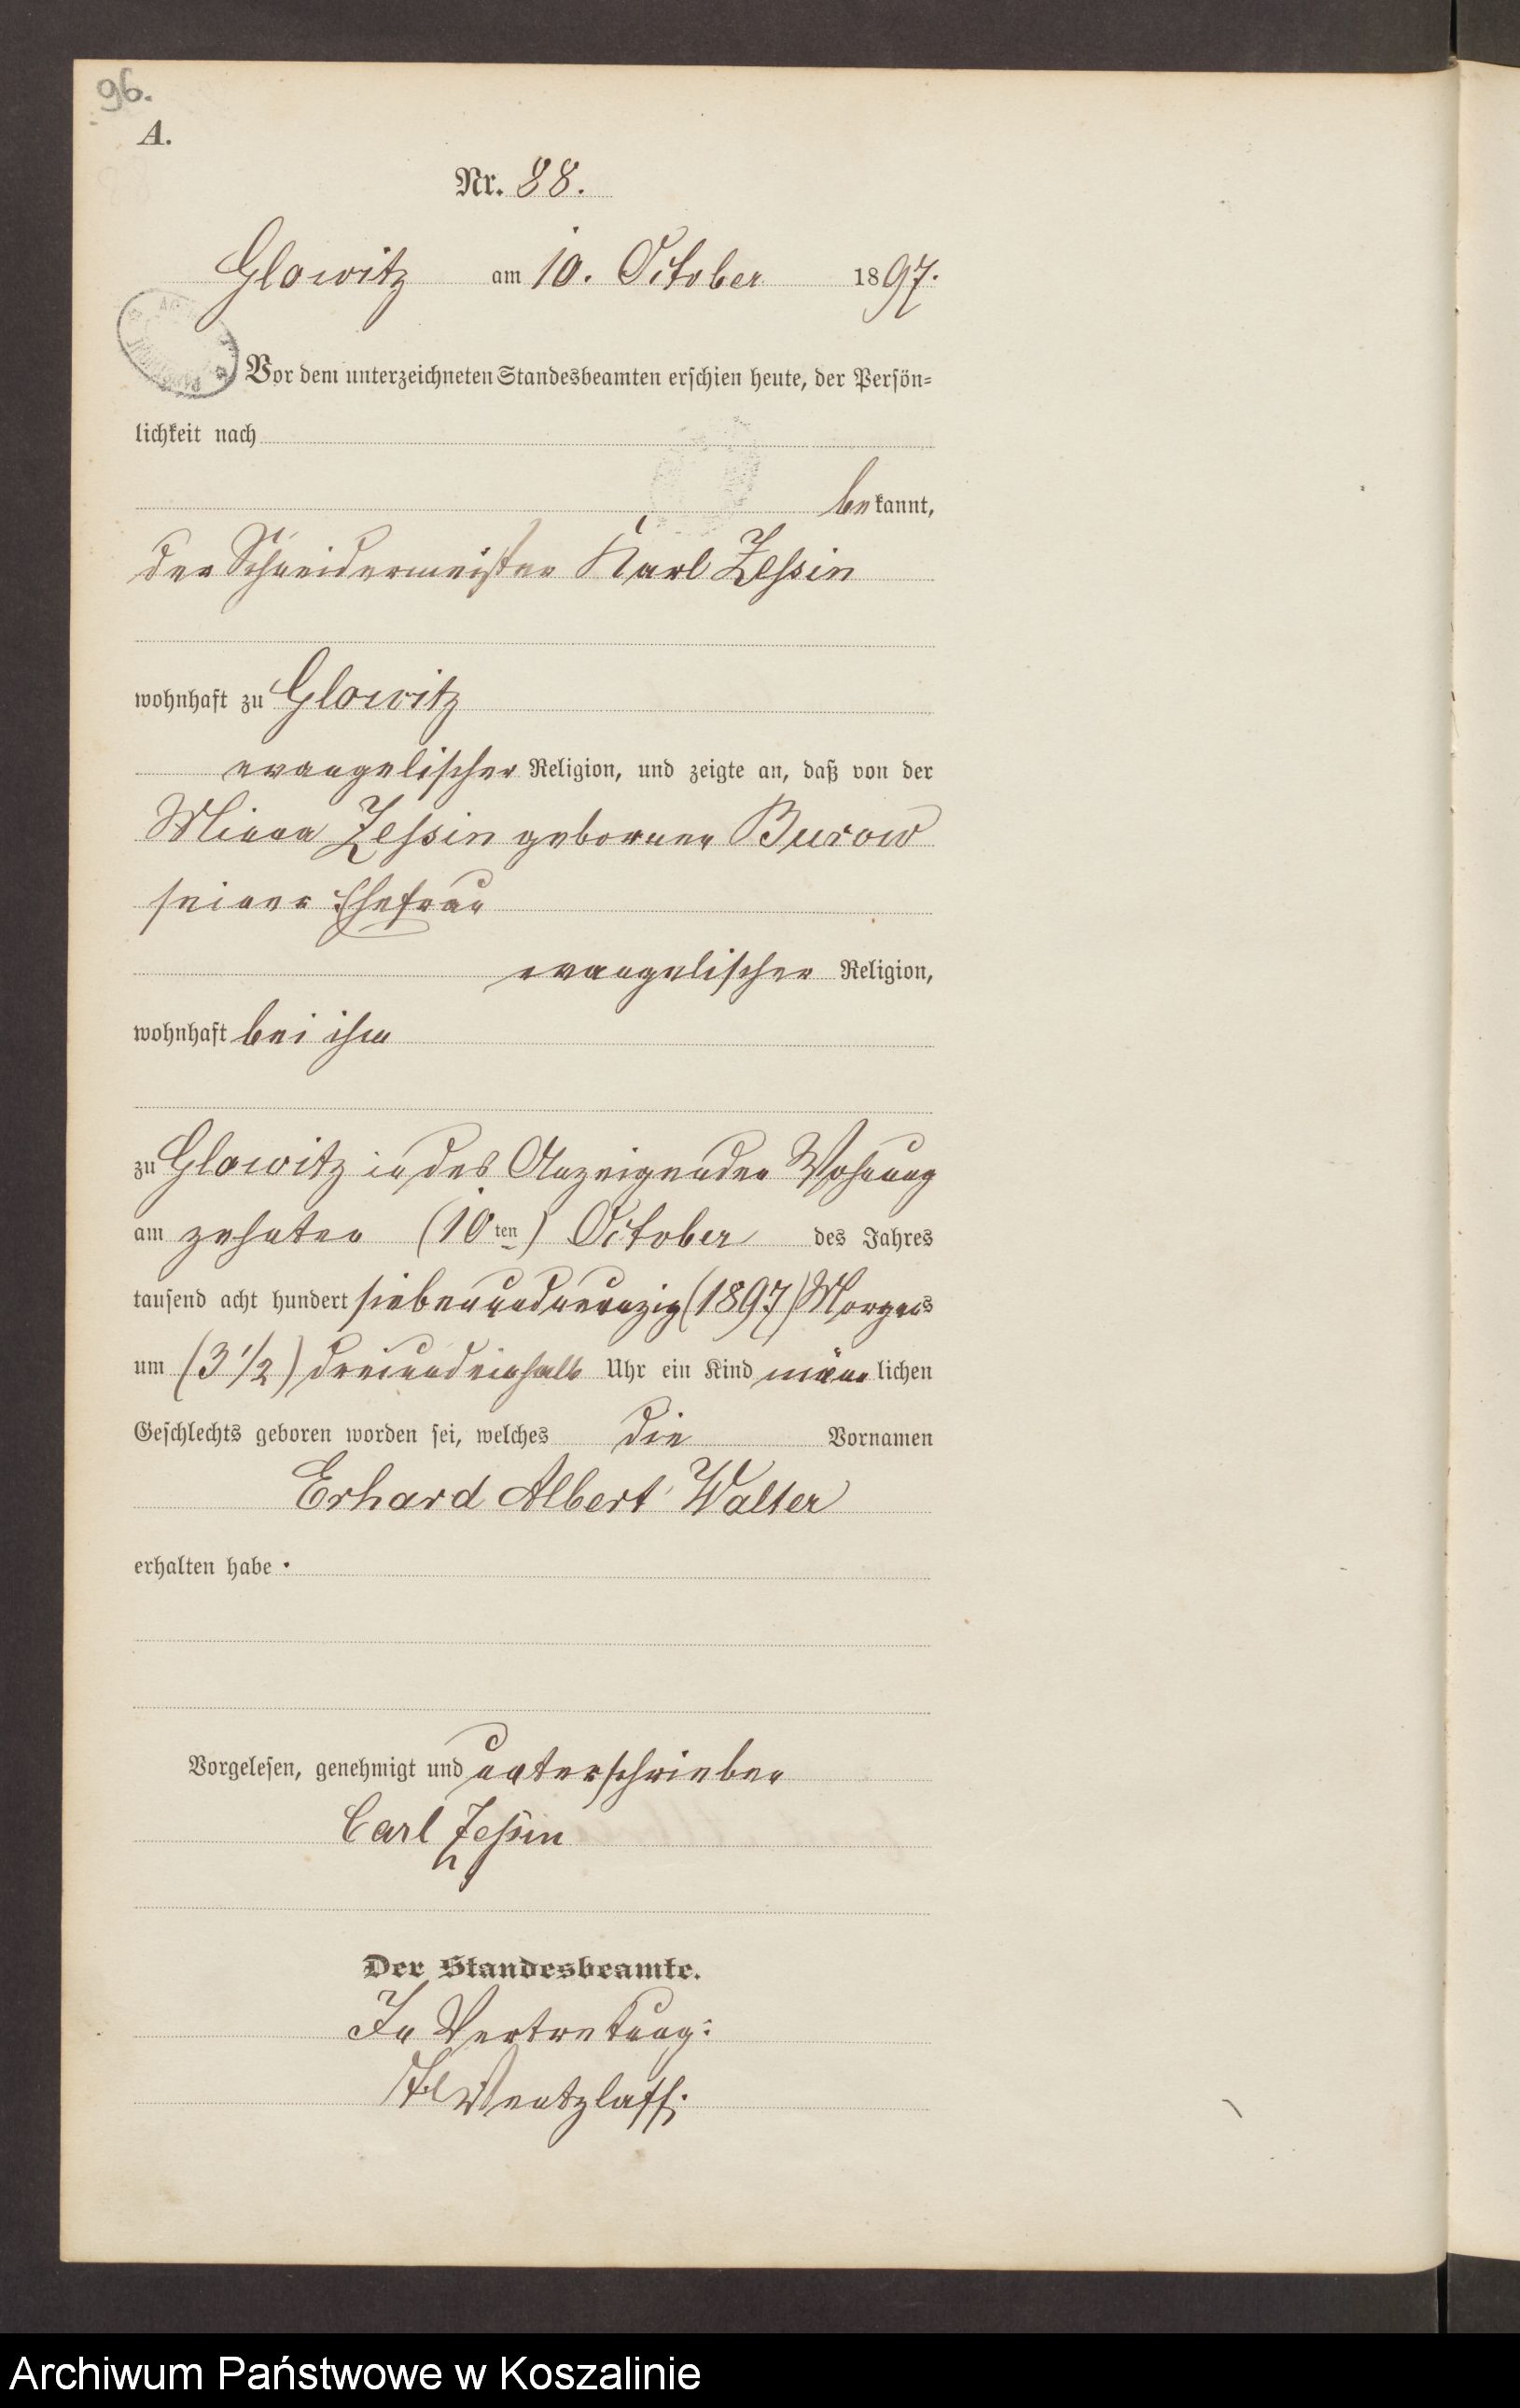 96.
A.
Nr. 88.
Glowitz am 10. October 1897.
Vor dem unterzeichneten Standesbeamten erschien heute, der Persön=
lichkeit nach
bekannt,
der Schneidermeister Karl Zessin
wohnhaft zu Glowitz
evangelischer Religion, und zeigte an, daß von der
Minna Zessin geborenen Burow
seiner Ehefrau
evangelischer Religion,
wohnhaft bei ihm
zu Glowitz in des Anzeigenden Wohnung
am zehnten (10ten) October des Jahres
tausend acht hundert siebenundneunzig (1897) Morgens
um (3 1/2) dreiundeinhalb Uhr ein Kind männlichen
Geschlechts geboren worden sei, welches die Vornamen
Erhard Albert Walter
erhalten habe.
Vorgelesen, genehmigt und unterschrieben
Carl Zessin
Der Standesbeamte.
In Vertretung:
Wentzlaff.
Archiwum Państwowe w Koszalinie